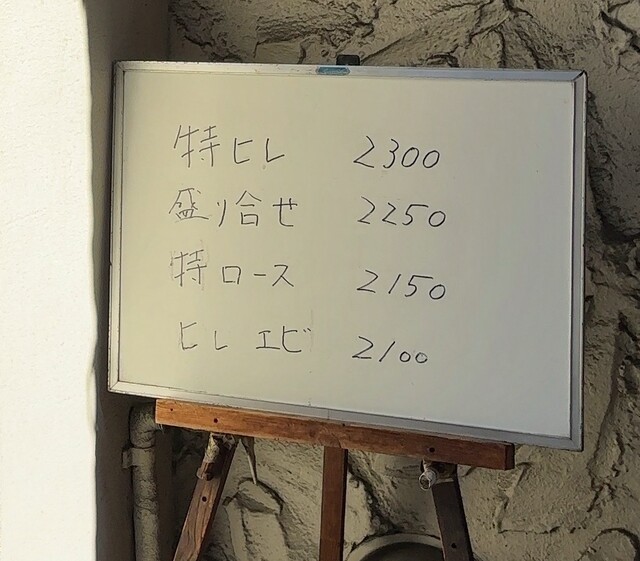 特ヒレ 2300
盛り合せ 2250
特ロース 2150
ヒレ エビ 2100